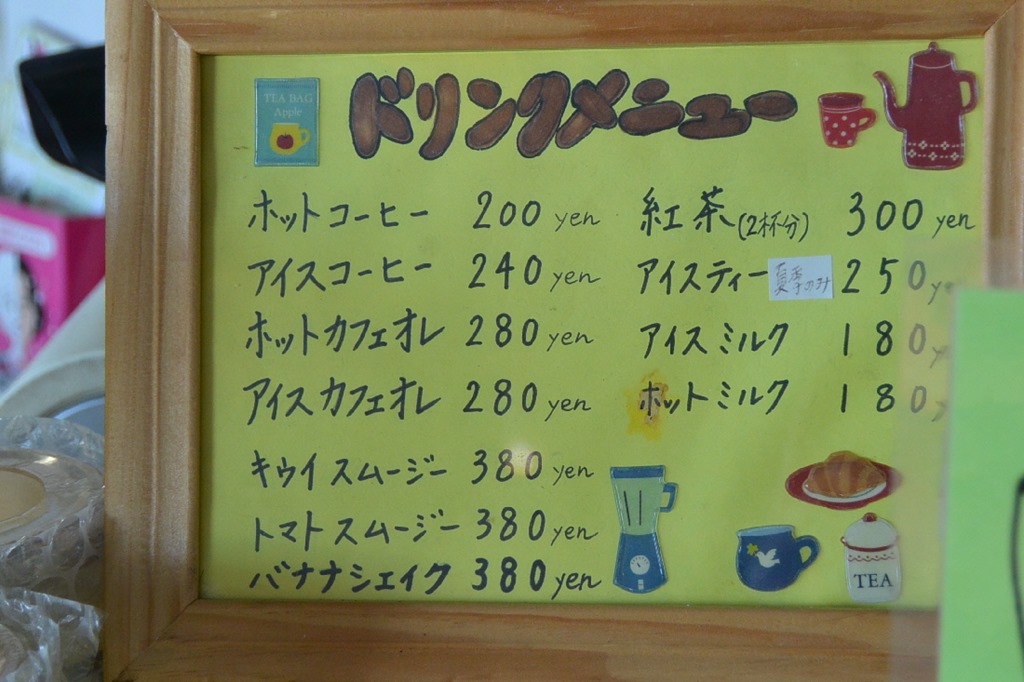 TEA BAG
Apple
ドリンクメニュー
ホットコーヒー 200 yen
アイスコーヒー 240 yen
ホットカフェオレ 280 yen
アイスカフェオレ 280 yen
キウイスムージー 380 yen
トマトスムージー 380 yen
バナナシェイク 380 yen
紅茶(2杯分) 300 yen
アイスティー 夏季のみ 250 ye
アイスミルク 180 y
ホットミルク 180 y
TEA